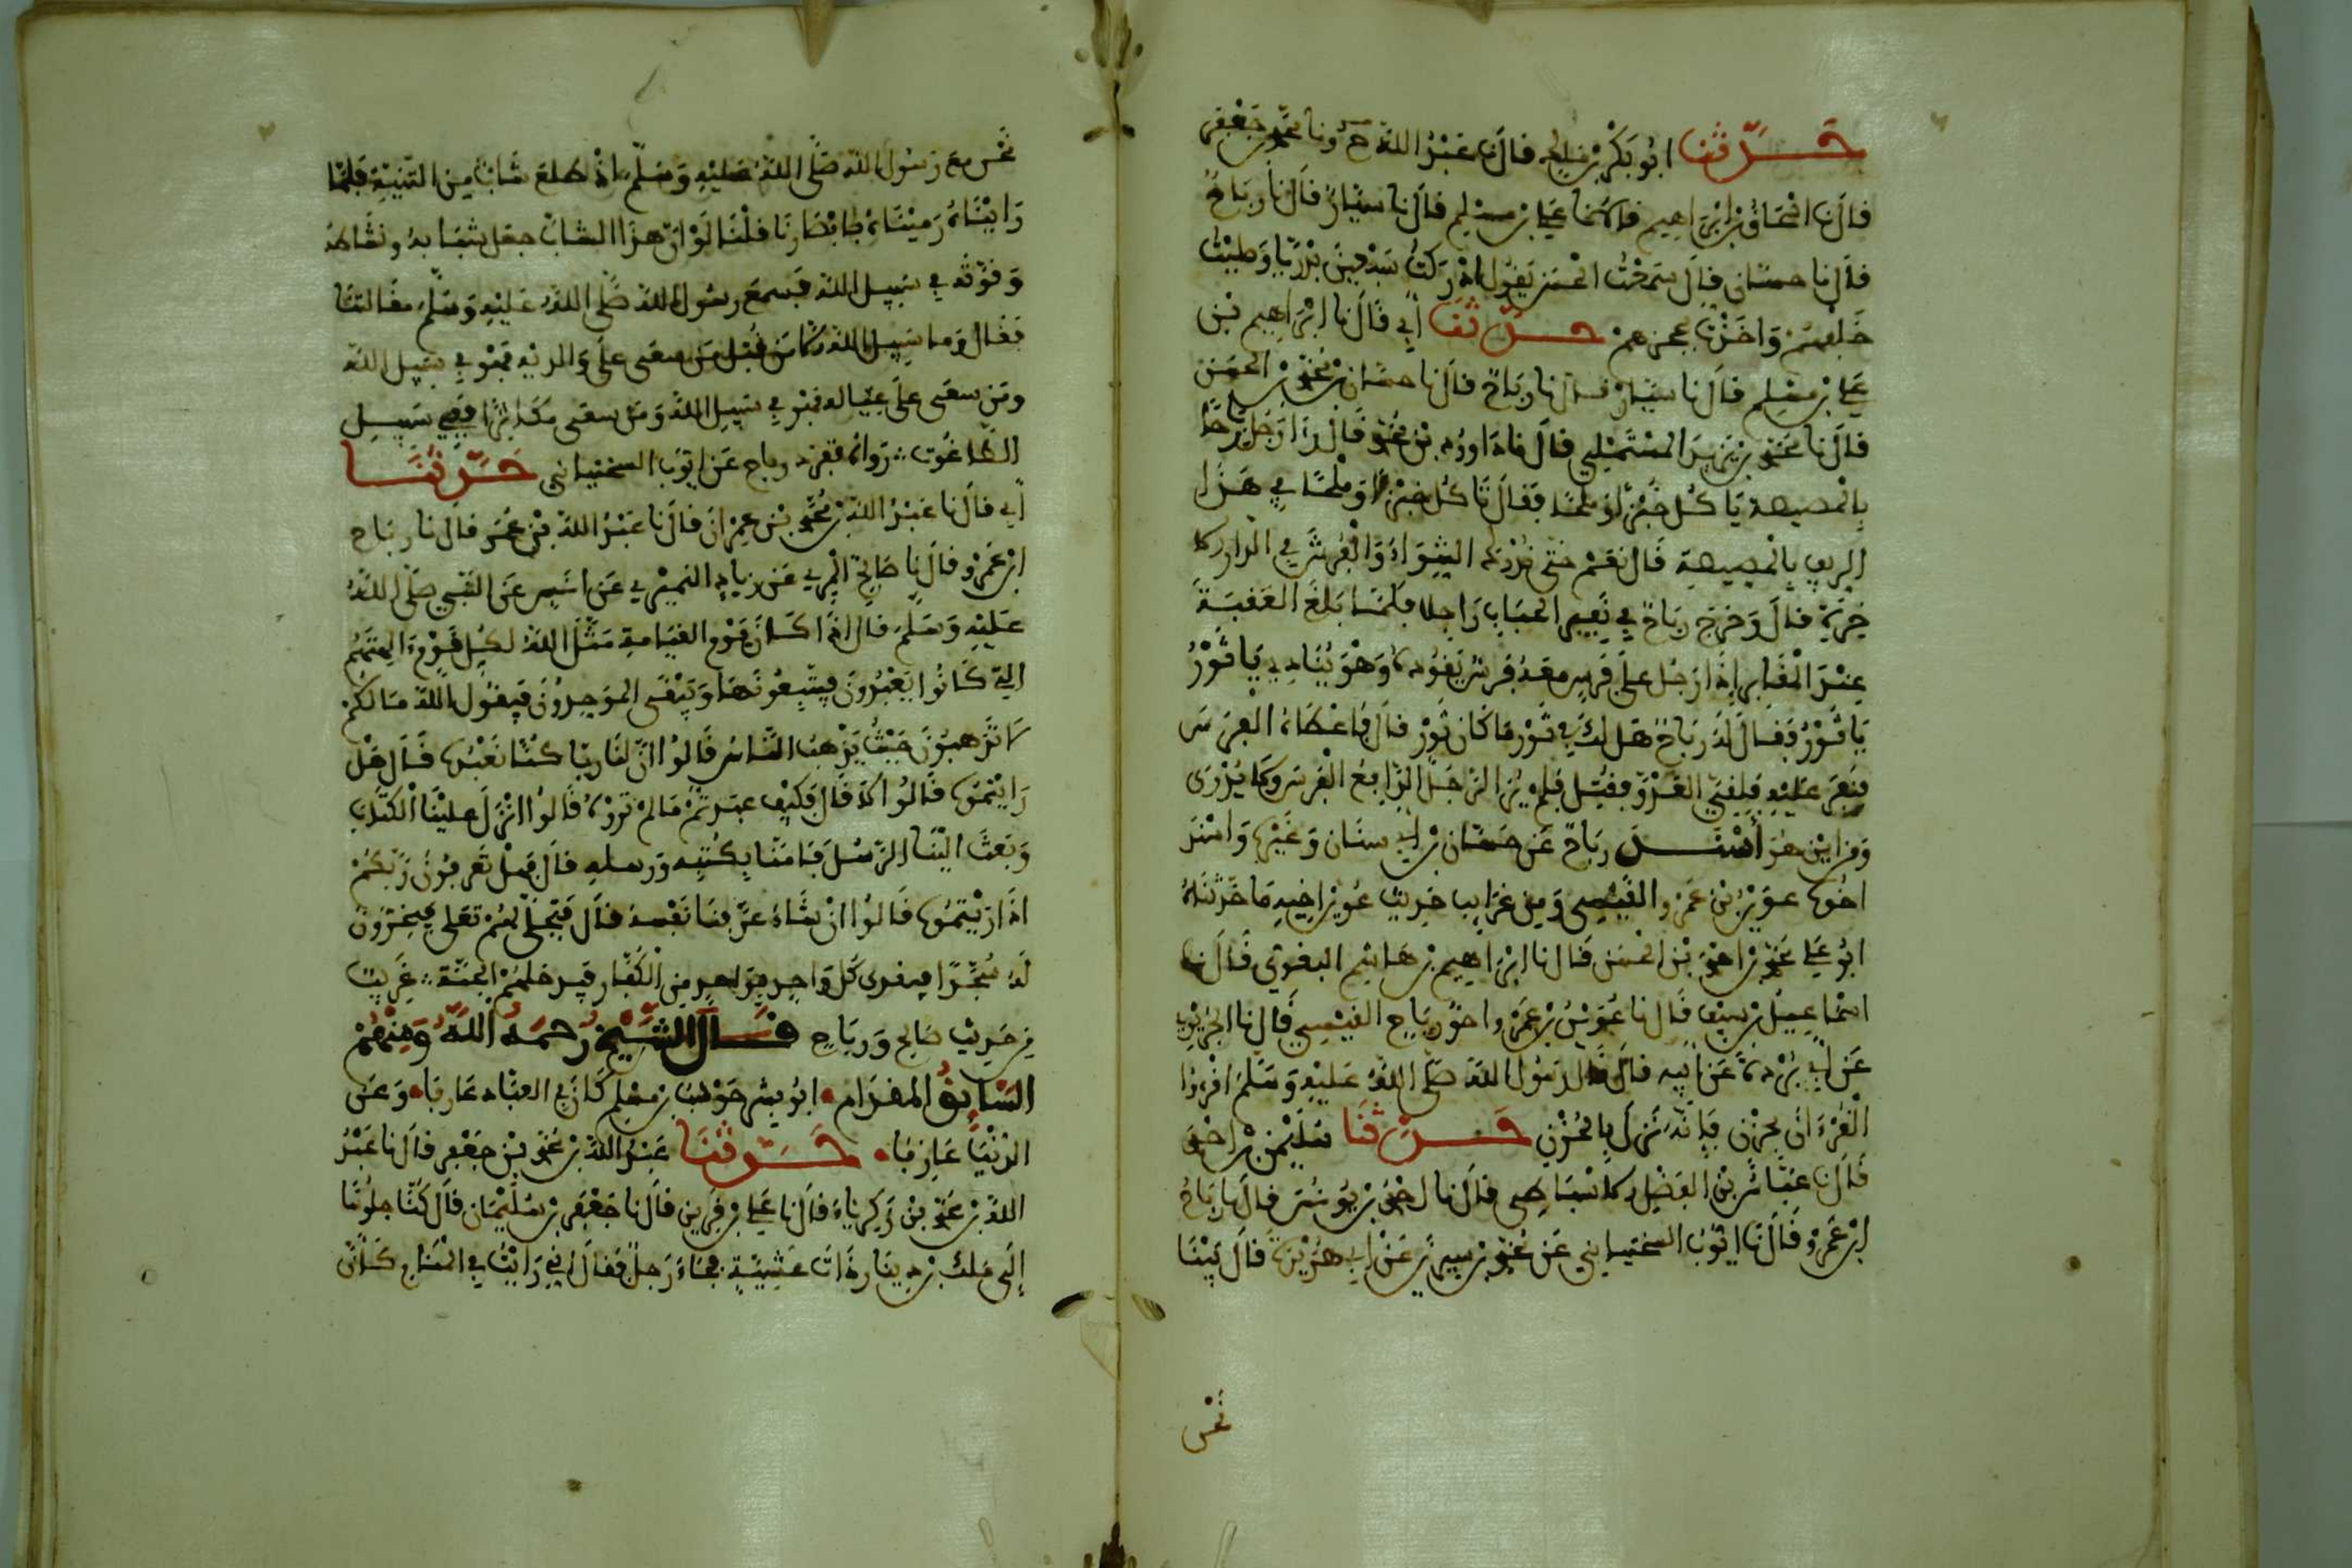 حدثنا ابو بكر بن مالك قال نا عبد الله ح ونا محمد بن جعفر
قال نا اسحاق بن ابراهيم قالا نا علي بن مسلم قال نا سيار قال نا رباح
قال نا حسان قال سمعت الحسن يقول ادركت سبعين بدريا وصليت
خلفهم واخذت بحجزهم حدثنا أبي قال نا ابراهيم بن
علي بن مسلم قال نا سيار قال نا رباح قال نا حسان بن محمد بن الحسن
قال نا محمد بن يزيد المستملي قال نا داوود بن محمد قال رءا رجل رباحا
بالمصيصة ياكل خبزا وملحا فقال تاكل خبزا وملحا في هذا
الريف بالمصيصة قال نعم حتى ندرك الشواء والعرس في الدار الا
خرة قال وخرج رباح في نفير راجلا فلما بلغ العقبة
عند المقابر اذا رجل على فرس معه فرس يقوده وهو ينادي يا ثور
يا ثور فقال له رباح هل لك في ثور مكان ثور قال فاعطاه الفرس
فنفر عليه فلقي العدو فقتل فلم ير الرجل الدافع الفرس ولا يدرى
من اين هو أسند رباح عن حسان بن أبي سنان وغيره واسند
اخوه عوين بن عمرو القيسي ومن غرايب حديث عوين اخيه ما حدثناه
ابو علي محمد بن احمد بن الحسن قال نا ابراهيم بن هاشم البغوي قال نا
اسماعيل بن سيف قال نا عوين بن عمرو اخو رباح القيسي قال نا الجريري
عن أبي بردة عن ابيه قال قال رسول الله صلى الله عليه وسلم اقرءوا
القرءان بحزن فإنه نزل بالحزن حدثنا سليمن بن احمد
قال نا عباس بن الفضل الاسفاطي قال نا احمد بن يونس قال نا رباح
ابن عمرو قال نا ايوب السختياني عن محمد بن سيرين عن أبي هريرة قال بينا
نحن
نحن مع رسول الله صلى الله عليه وسلم اذ طلع شاب من الثنية فلما
رايناه رميناه بابصارنا فقلنا لو ان هذا الشاب جعل شبابه ونشاطه
وقوته في سبيل الله فسمع رسول الله صلى الله عليه وسلم مقالتنا
فقال وما سبيل الله الا من قتل من سعى على والديه فهو في سبيل الله
ومن سعى على عياله فهو في سبيل الله ومن سعى مكاثرا ففي سبيل
الطاغوت رواه رباح عن ايوب السختياني حدثنا
أبي قال نا عبد الله بن محمد بن عمران قال نا عبد الله بن عمر قال نا رباح
ابن عمرو قال نا صالح المري عن زياد النميري عن انس عن النبي صلى الله
عليه وسلم قال اذا كان يوم القيامة مثل الله لكل قوم الهتهم
التي كانوا يعبدون فيتبعونها ويبقى الموحدون فيقول الله ما لكم
لا تذهبون حيث يذهب الناس قالوا ان لنا ربا كنا نعبده قال هل
رايتموه قالوا لا قال فكيف عبدتم ما لم تروه قالوا انزل علينا الكتاب
وبعث الينا الرسل فامنا بكتبه ورسله قال فهل تعرفون ربكم
اذا رايتموه قالوا ان شاء عرفنا نفسه قال فيتجلى لهم تعلى فيخرون
له سجدا فيفدى كل واحد بواحد من الكفار فيدخلهم الجنة غريب
من حديث صالح ورباح قال الشيخ رحمه الله ومنهم
السابق المقدام ابو بشر حوشب بن مسلم كان في العباد عارفا وعن
الدنيا عازفا حدثنا عبد الله بن محمد بن جعفر قال نا عبد
الله بن محمد بن زكرياء قال نا علي بن قرين قال نا جعفر بن سليمان قال كنا جلوسا
إلى ملك بن دينار ذات عشية فجاء رجل فقال اني رايت في المنام كان